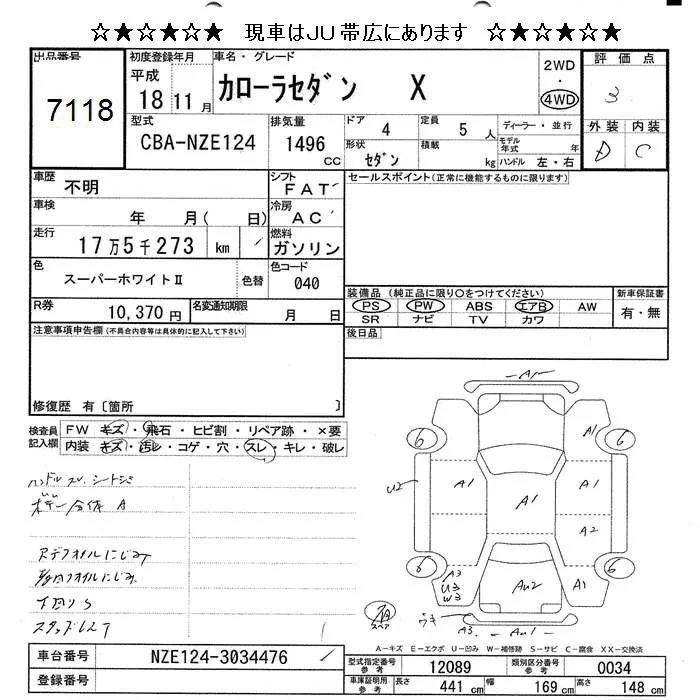 ☆★☆★☆★☆ 現車はJU帯広にあります ☆★☆★☆★☆
出品番号 初度登録年月 車名・グレード 2WD・4WD 評価点
7118 平成18 11月 カローラセダン X 3
型式 排気量 ドア 定員 ディーラー・並行 外装 内装
CBA-NZE124 1496 CC 4 5人 モデル年式 年 D C
形状 セダン 積載 kg ハンドル 左・右
車歴 不明 シフト FAT セールスポイント(正常に機能するものに限ります)
車検 年 月( 日) 冷房 AC
走行 17万5千273 km 燃料 ガソリン
色 スーパーホワイトⅡ 色替 色コード 040
装備品(純正品に限り○をつけてください) 新車保証書
R券 10,370円 名変通知期限 月 日 PS PW ABS エアB AW 有・無
SR ナビ TV カワ
注意事項申告欄(不具合内容等は具体的に記入して下さい) 後日品
修復歴 有〔箇所 〕
検査員記入欄 FW キズ・飛石・ヒビ割・リペア跡・×要
内装 キズ・汚レ・コゲ・穴・スレ・キレ・破レ
ハンドルスレ、シート
ボデー全体 A
Rデフオイルにじみ
下回りS
スタッドレス
A1
A1
6 6
U2 A1 A1 A1
A2
6 6
A3 U3 W3 AU2 A1
スペア
A3
A-キズ E-エクボ U-凹み W-補修跡 S-サビ C-腐食 XX-交換済
車台番号 NZE124-3034476 型式指定番号 参考 12089 類別区分番号 参考 0034
登録番号 車庫証明用 参考 長さ 441 cm 幅 169 cm 高さ 148 cm